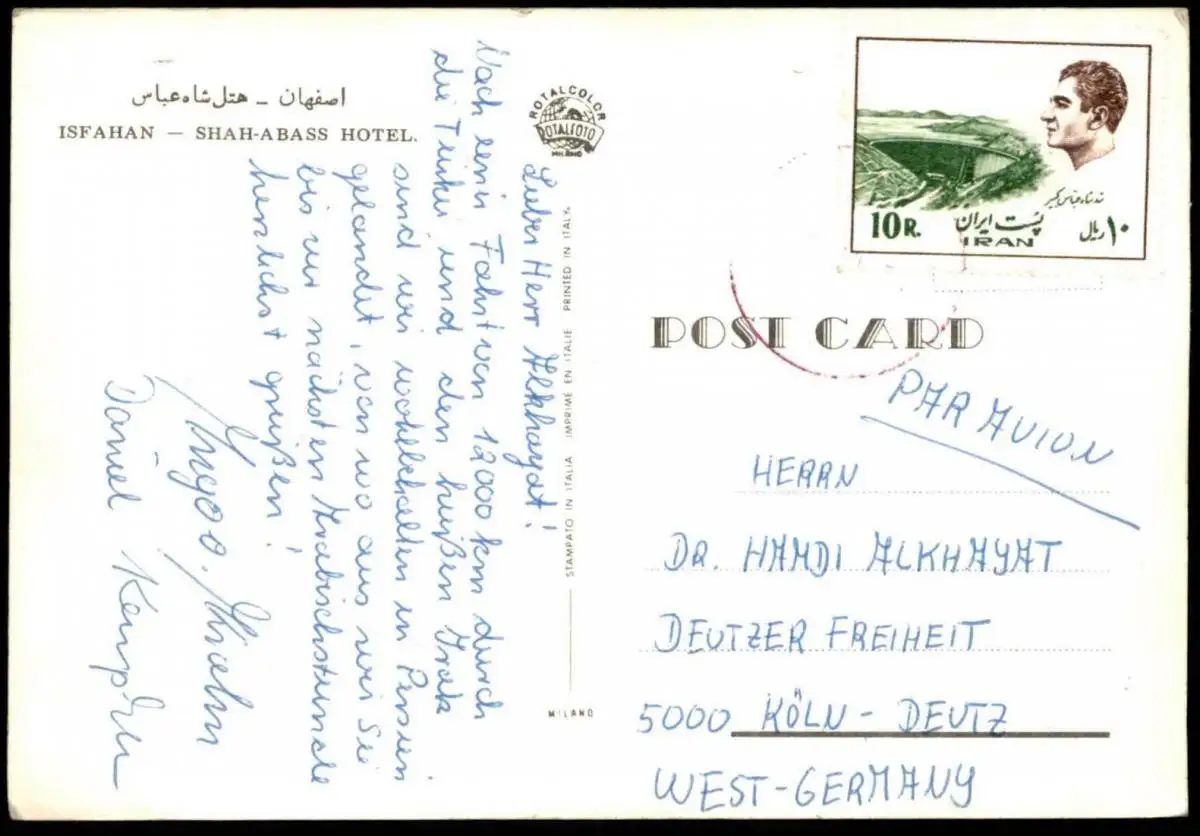 اصفهان – هتل شاه عباس
ISFAHAN — SHAH-ABASS HOTEL.
Lieber Herr Alkhayat!
Nach einer Fahrt von 12000 km durch
die Türkei und den heißen Irak
sind wir wohlbehalten in Persien
gelandet, von wo aus wir Sie
bis zur nächsten Arabischstunde
herzlichst grüßen!
Ingo
Daniel
ROTALCOLOR
ROTALFOTO
MILANO
STAMPATO IN ITALIA IMPRIME EN ITALIE PRINTED IN ITALY.
MILANO
سد شاه عباس کبیر
10 R.
پست ایران
۱۰ ریال
IRAN
POST CARD
PAR AVION
HERRN
DR. HAMDI ALKHAYAT
DEUTZER FREIHEIT
5000 KÖLN - DEUTZ
WEST-GERMANY